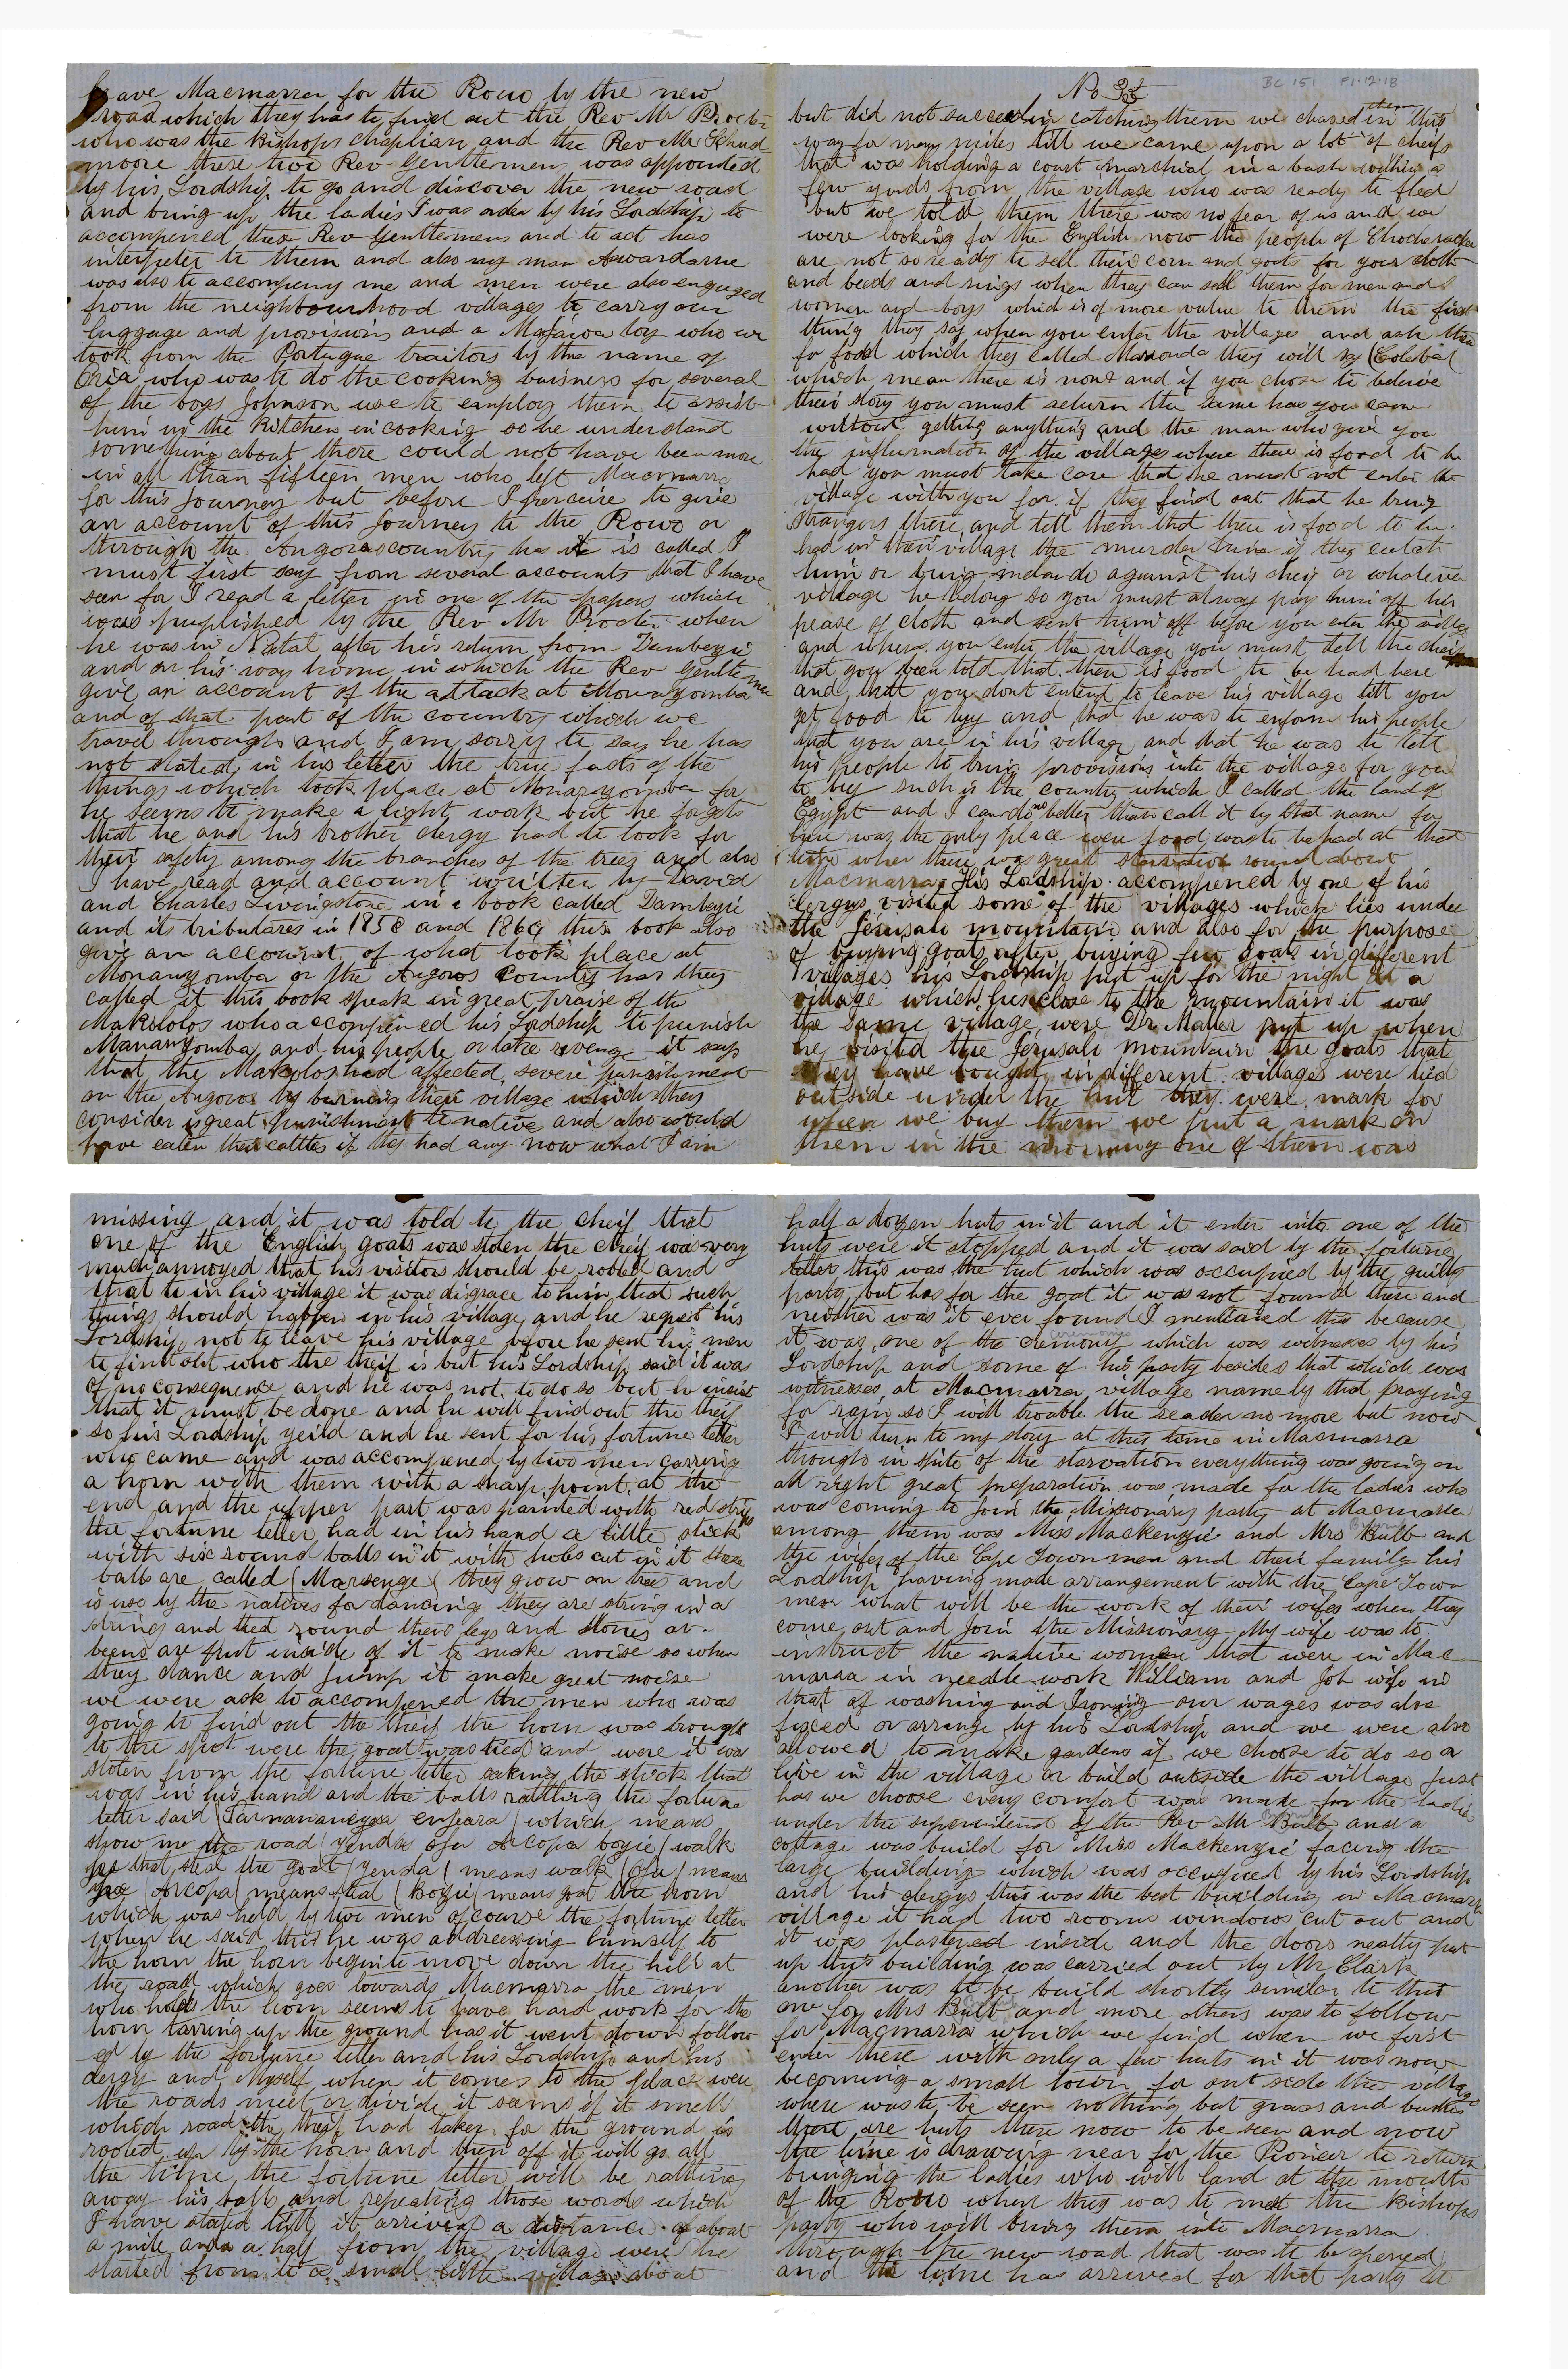 leave Macmarra for the Rowo by the new
road which they has to find out the Rev Mr Procter
who was the Bishops chaplian and the Rev Mr Schud
moore these two Rev gentlemens was appointed
by his Lordship to go and discover the new road
and bring up the ladies I was order by his Lordship to
accompened these Rev Gentlemens and to act has
interpeter to them and also my man Awardarne
was also to accompeny me and men were also engaged
from the neighbourhood villages to carry our
luggage and provisions and a Mafawa boy who we
took from the Portugue traitors by the name of
Oria who was to do the cooking buisness for several
of the boys Johnson use to employ them to assist
him in the Kitchen in cooking so he understand
something about there could not have been more
in all than fifteen men who left Macmarra
for this Journey but before I perceive to give
an account of this Journey to the Rowo or
through the Angoros country has it is called I
must first say from several accounts that I have
seen for I read a letter in one of the papers which
was puplished by the Rev Mr Procter when
he was in Natal after his return from Dambezi
and on his way home in which the Rev Gentleman
give an account of the attack at Monazomba
and of that part of the country which we
travel through and I am sorry to say he has
not stated in his letter the true facts of the
things which took place at Monazyomba for
he seems to make a light work but he forgets
that he and his brother clergy had to look for
their safety among the branches of the trees and also
I have read and account written by David
and Charles Livingstone in a book called Dambezi
and its tributares in 1858 and 1864 this book also
give an account of what took place at
Monanyomba or the Angoros country has they
called it this book speak in great praise of the
Makololos who accompened his Lordship to punish
Mananyomba and his people or take revenge it says
that the Makololos had affected severe punishment
on the Angoros by burning their village which they
consider is great punishment to native and also would
have eaten their cattles if they had any now what I am
No 33
BC 151 F1.12.18
but did not succeed in catching them we chased them in this
way for many miles till we came upon a lot of cheifs
that was holding a court marchial in a bush within a
few yards from the village who was ready to fled
but we told them there was no fear of us and we
were looking for the English now the people of Chocheracka
are not so ready to sell their corn and goats for your cloth
and beeds and rings when they can sell them for men and
women and boys which is of more value to them the first
thing they say when you enter the village and ask them
for food which they called Maronda they will say (Colebat
which mean there is none and if you chose to beleive
their story you must return the same has you came
without getting anything and the man who give you
the influrmation of the village where there is food to be
had you must take care that he must not enter the
village with you for if they find out that he bring
strangers there and tell them that there is food to be
had in their village the murder him if they catch
him or bring against his cheif or whatever
village he belong so you must always pay him off his
pease of cloth and sent him off before you enter the village
and when you enter the village you must tell the cheif
that you been told that there is food to be had here
and that you dont entend to leave his village till you
get food to buy and that he was to enform his people
that you are in his village and that he was to tell
his people to bring provisions into the village for you
to buy such is the country which I called the land of
Egypt and I can do no better than call it by that name for
here was the only place were food was to be had at that
time when there was great starvation round about
Macmarra His Lordship accompened by one of his
clergys visited some of the villages which lies under
the Jerusalo mountain and also for the purpose
of buying goats after buying few goats in different
villages his Lordship put up for the night at a
village which lies close to the mountain it was
the same village were Dr Maller put up when
he visited the Jerusali mountain the goats that
they have bought in different villages were tied
outside under the hut they were mark for
when we buy them we put a mark on
them in the morning one of them was
missing and it was told to the cheif that
one of the English goats was stolen the cheif was very
much annoyed that his visitors should be robed and
that to in his village it was disgrace to him that such
things should happen in his village and he request his
Lordship not to leave his village before he sent his men
to find out who the theif is but his Lordship said it was
of no consequence and he was not to do so but he insist
that it must be done and he will find out the theif
so his Lordship yeild and he sent for his fortune teller
who came and was accompened by two men carring
a horn with them with a sharp point at the
end and the upper part was painted with red strips
the fortune teller had in his hand a little stick
with six round balls in it with holes cut in it these
balls are called (Marsenge( they grow on trees and
is use by the natives for dancing they are string in a
string and tied round there legs and stones or
beens are put inside of it to make noise so when
they dance and jump it make great noise
we were ask to accompened the men who was
going to find out the theif the horn was brought
to the spot were the goat was tied and were it was
stolen from the fortune teller taking the stick that
was in his hand and the balls rattling the fortune
teller said (Tarmanancyoa enjeara( which means
show me the road (yenda ofu Arcopa boyie( walk
you that steal the goat (Yenda( means walk (Ofu( means
you (Arcopa( means that (Boyie( means goat the horn
which was held by two men of course the fortune teller
when he said this he was addressing himself to
the horn the horn begin to move down the hill at
the road which goes towards Macmarra the men
who holds the horn seems to have hard work for the
horn tarring up the ground has it went down follow
ed by the fortune teller and his Lordship and his
clergy and Myself when it comes to the place were
the roads meet or divide it seems if it smell
which road the theif had taken for the ground is
rooted up by the horn and then off it will go all
the time the fortune teller will be rattling
away his balls and repeating those words which
I have stated till it arrived a distance of about
a mile and a half from the village were he
started from to a small little village about
half a dozen huts in it and it enter into one of the
huts were it stopped and it was said by the fortune
teller this was the hut which was occupied by the guilty
party but has for the goat it was not found there and
neither was it ever found I mentioned this because
it was one of the cremony which was witnesses by his
Lordship and some of his party besides that which was
witnesses at Macmarra village namely that praying
for rain so I will trouble the reader no more but now
I will turn to my story at this time in Macmarra
though in spite of the starvation everything was going on
all right great preparation was made for the ladies who
was coming to join the Missionary party at Macmarra
among them was Miss Mackenzie and Mrs Bulb and
the wifes of the Cape Town men and their family his
Lordship having made arrangement with the Cape Town
men what will be the work of their wifes when they
come out and Join the Missionary My wife was to
instruct the native women that were in Mac
marra in needle work William and Job wife in
that of washing and Ironing our wages was also
fixed or arrange by his Lordship and we were also
allowed to make gardens if we choose to do so or
live in the village or build outside the village just
has we choose every comfort was make for the ladies
under the superindend of the Rev Mr Bulb and a
cottage was build for Miss Mackenzie facing the
large building which was occupied by his Lordship
and his clergys this was the best building in Macmarra
village it had two rooms windows cut out and
it was plastered inside and the doors neatly put
up this building was carried out by Mr Clark
another was to be build shortly similar to this
one for Mrs Bulb and more others was to follow
for Macmarra which we find when we first
enter there with only a few huts in it was now
becoming a small town for out side the village
where was to be seen nothing but grass and bushes
there are huts there now to be seen and now
the time is drawing near for the Pioneer to return
bringing the ladies who will land at the mouth
of the Rowo when they was to met the Bishops
party who will bring them into Macmarra
through the new road that was to be opened
and the time has arrived for that party to